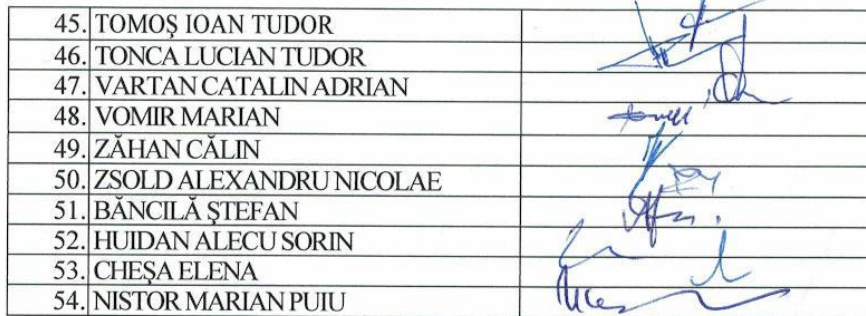 45. TOMOŞ IOAN TUDOR
46. TONCA LUCIAN TUDOR
47. VARTAN CATALIN ADRIAN
48. VOMIR MARIAN
49. ZĂHAN CĂLIN
50. ZSOLD ALEXANDRU NICOLAE
51. BĂNCILĂ ŞTEFAN
52. HUIDAN ALECU SORIN
53. CHEŞA ELENA
54. NISTOR MARIAN PUIU